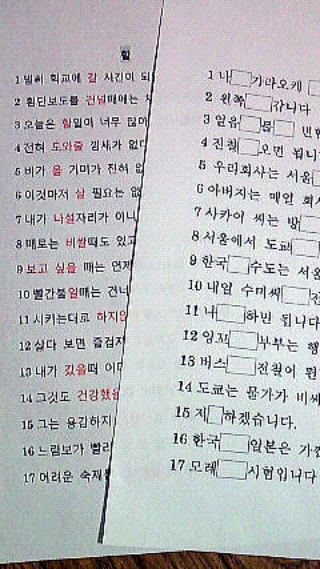 할
1 벌써 학교에 갈 시간이 되
2 횡단보도를 건널때에는
3 오늘은 할일이 너무 많아
4 전혀 도와줄 낌새가 없다
5 비가 올 기미가 전혀 없
6 이것마저 살 필요는 없
7 내가 나설자리가 아니
8 때로는 비쌀때도 있고
9 보고 싶을 때는 언제
10 빨간불일때는 건너
11 시키는대로 하지않
12 살다 보면 즐겁지
13 내가 갔을때 이미
14 그것도 건강했을
15 그는 용감하지
16 느림보가 빨리
17 어려운 숙제
1 나 가라오케
2 왼쪽 갑니다
3 얼음 를
4 진철 오면 됩니
5 우리회사는 서울
6 아버지는 매일 회사
7 사카이 씨는 방
8 서울에서 도쿄
9 한국 수도는 서울
10 내일 수미씨 전
11 나 하면 됩니다
12 잉꼬 부부는 행
13 버스 전철이 편
14 도쿄는 물가가 비싸
15 지 하겠습니다.
16 한국 일본은 가깝
17 모레 시험입니다